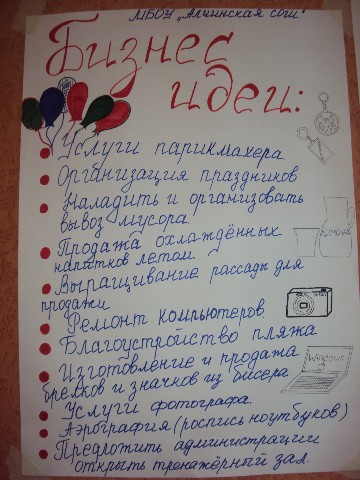 МБОУ „Алчинская СОШ"
Бизнес
идеи:
Услуги парикмахера
Организация праздников
Наладить и организовать
вывоз мусора
Продажа охлаждённых
напитков летом
Выращивание рассады для
продажи
Ремонт компьютеров
Благоустройство пляжа
Изготовление и продажа
брелков и значков из бисера
Услуги фотографа
Аэрография (роспись ноутбуков)
Предложить администрации
открыть тренажёрный зал.
Windows